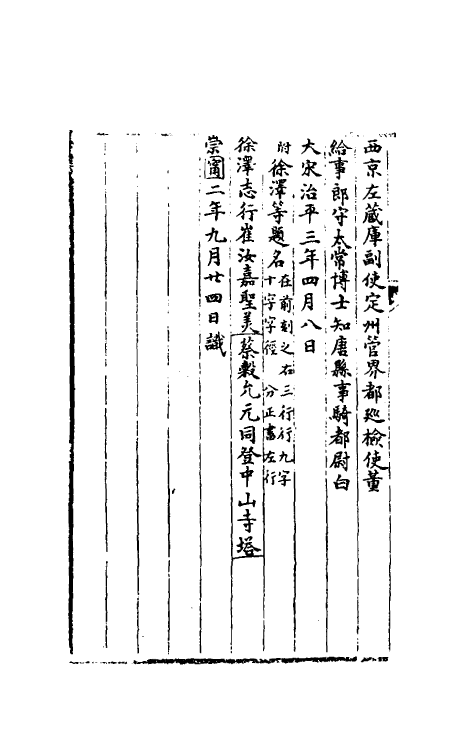 西京左蔵庫副使定州管界都廵檢使董
給事郎守太常博士知唐縣事騎都尉白
大宋治平三年四月八日
附徐澤等題名在前刻之右三行行九字
十字字徑　分正書左行
徐澤志行崔汝嘉聖美蔡縠允元同登中山寺塔
崇甯二年九月廿四日識